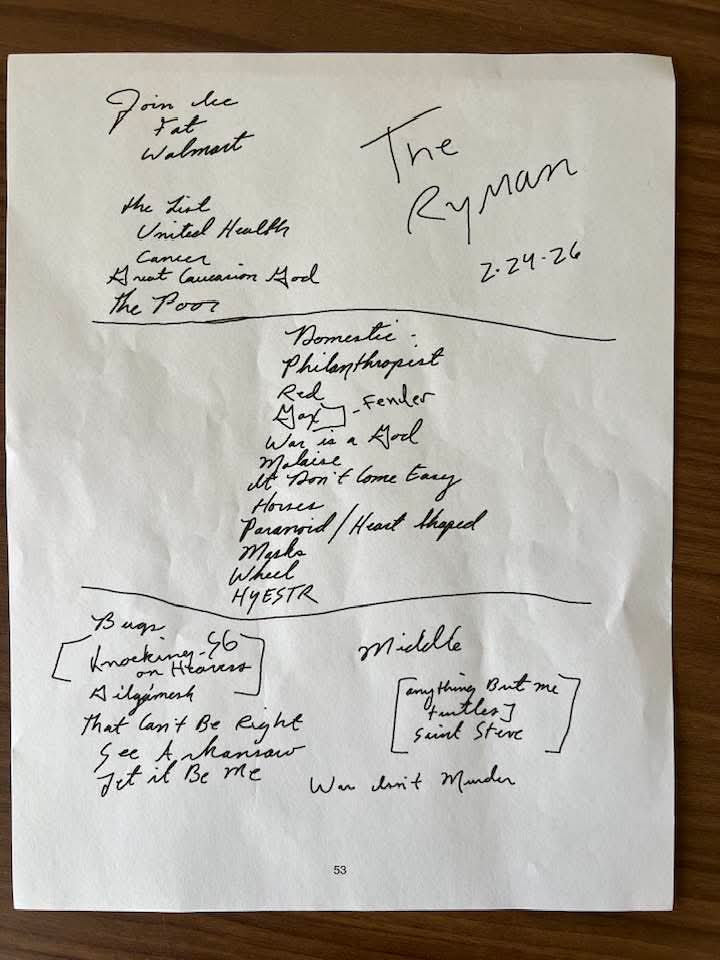 Join Ice
Fat
Walmart
The Ryman
2-24-26
the List
United Health
Cancer
Great Caucasion God
The Poor
Domestic -
Philanthropist
Red
Gaxi ] - Fender
War is a God
Malaise
It Don't Come Easy
Horses
Paranoid / Heart Shaped
Masks
Wheel
HYESTR
Bugs
[ Knocking - SG
on Heavens
Gilgamesh ]
That Can't Be Right
See Arkansaw
Let it Be Me
Middle
[ anything But me
turtles ]
Saint Steve ]
War Isn't Murder
53